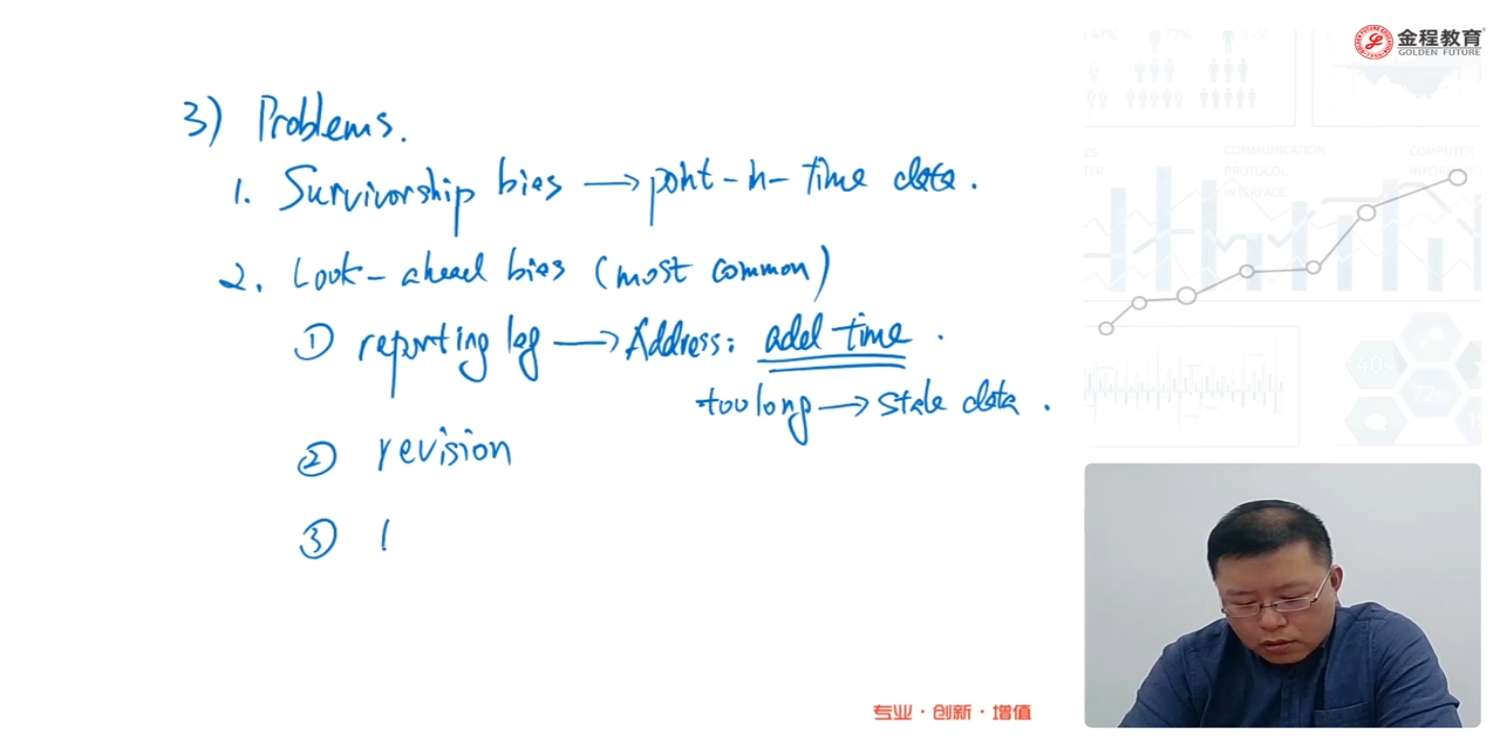 金程教育
GOLDEN FUTURE
3) Problems.
1. Survivorship bias → point-in-time data.
2. Look-ahead bias (most common)
① reporting lag → Address: add time.
too long → Stale data.
② revision
③
COMMUNICATION
PROTOCOL
INTERFACE
COMPUTER
专业·创新·增值